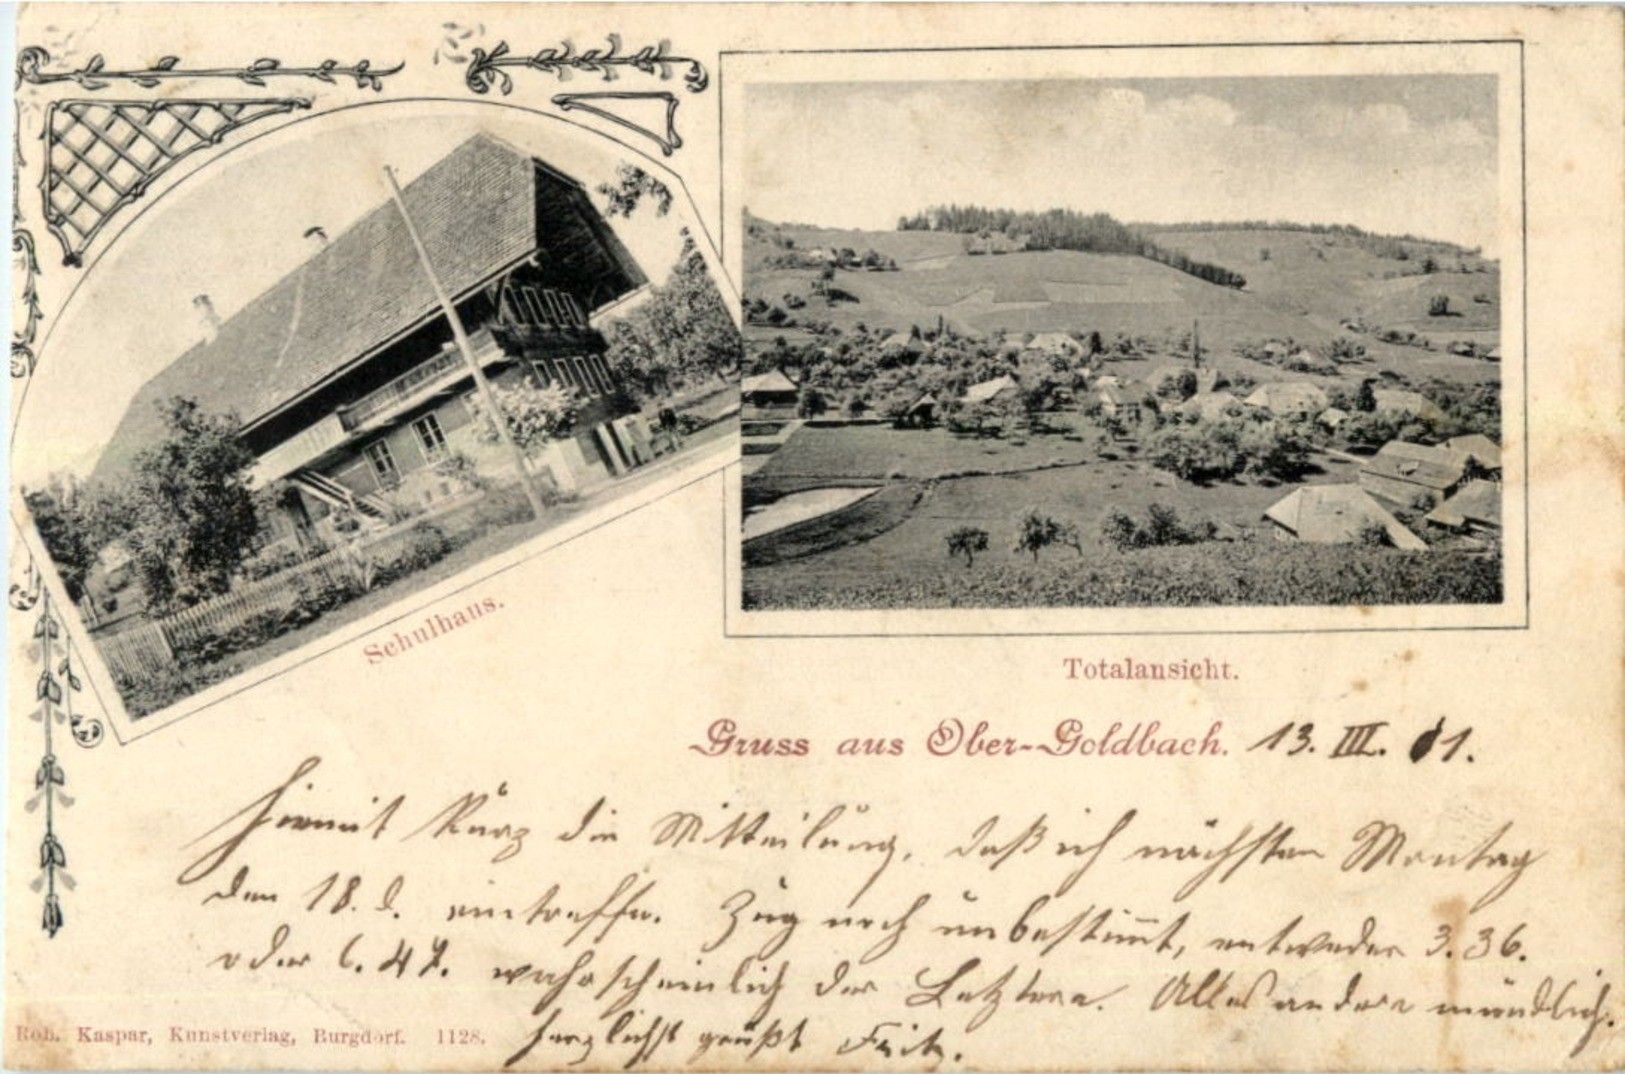 Schulhaus.
Totalansicht.
Gruss aus Ober-Goldbach. 13. III. 01.
Hiermit kurz die Mitteilung, daß ich nächsten Montag
den 18. d. eintreffe. Zug noch unbestimmt, entweder 3.36.
oder 6.47. wahrscheinlich der Letztere. Alles andere mündlich.
Herzlichst grüßt Fritz.
Rob. Kaspar, Kunstverlag, Burgdorf. 1128.